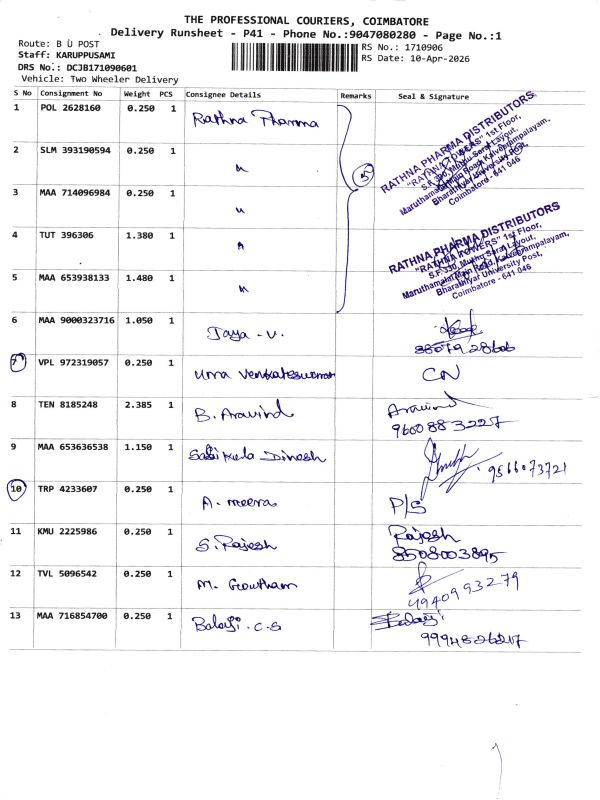 THE PROFESSIONAL COURIERS, COIMBATORE
Delivery Runsheet - P41 - Phone No.:9047080280 - Page No.:1
Route: B U POST
Staff: KARUPPUSAMI
DRS No.: DCJB171090601
Vehicle: Two Wheeler Delivery
RS No.: 1710906
RS Date: 10-Apr-2026
S No Consignment No Weight PCS Consignee Details Remarks Seal & Signature
1 POL 2628160 0.250 1 Rathna Pharma
2 SLM 393190594 0.250 1 "
3 MAA 714096984 0.250 1 "
4 TUT 396306 1.380 1 "
5 MAA 653938133 1.480 1 "
5
RATHNA PHARMA DISTRIBUTORS
"RATHNA TOWERS" 1st Floor,
S.F.330, Muthu Surai Layout,
Maruthamalai Main Road, Kalveerampalayam,
Bharathiyar University Post,
Coimbatore - 641 046
RATHNA PHARMA DISTRIBUTORS
"RATHNA TOWERS" 1st Floor,
S.F.330, Muthu Surai Layout,
Maruthamalai Main Road, Kalveerampalayam,
Bharathiyar University Post,
Coimbatore - 641 046
6 MAA 9000323716 1.050 1 Jaya - v.
7 VPL 972319057 0.250 1 Uma Venkateswaran CN
8 TEN 8185248 2.385 1 B. Aravind Aravind
9600883227
9 MAA 653636538 1.150 1 Dinesh 9566073721
10 TRP 4233607 0.250 1 A. meera P/S
11 KMU 2225986 0.250 1 S. Rajesh Rajesh
8508003895
12 TVL 5096542 0.250 1 M. Gowtham
4940993279
13 MAA 716854700 0.250 1 Balaji. C.S Balaji